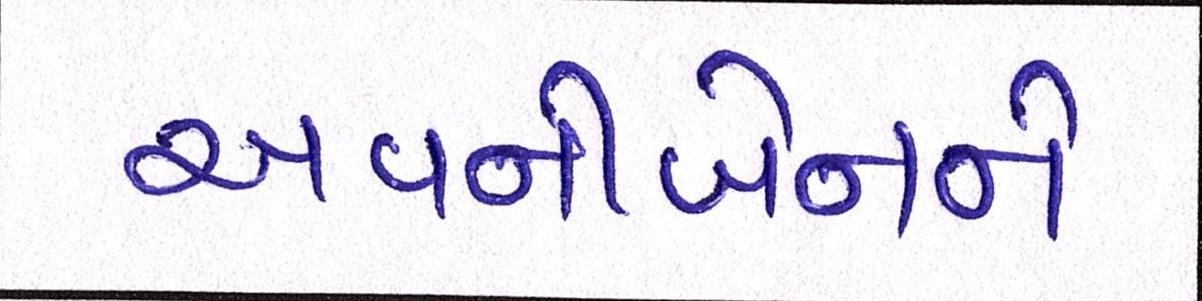 અવનીબેનને